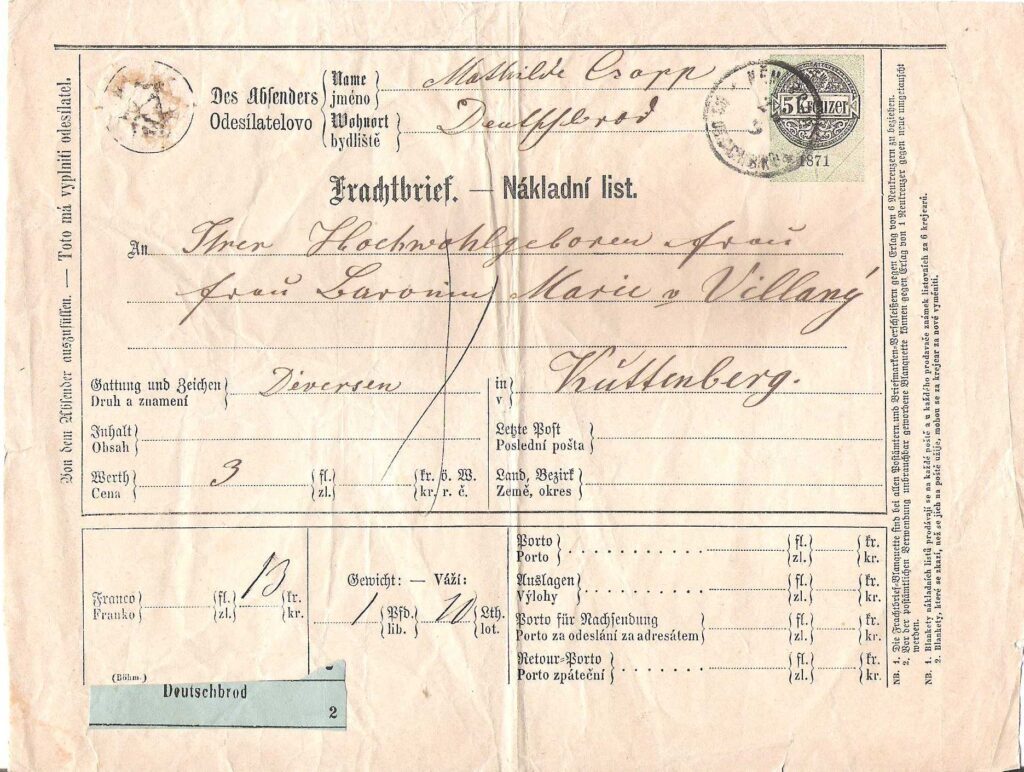 Des Absenders Name Mathilde Csapp
Odesílatelovo jméno
Wohnort Deutschbrod
bydliště
5 Kreuzer
1871
Frachtbrief. — Nákladní list.
An Ihrer Hochwohlgeboren frau
frau Baronin Marie v Villany
Gattung und Zeichen Diversen
Druh a znamení
in Kuttenberg.
v
Inhalt
Obsah
Letzte Post
Poslední pošta
Werth 3 fl. kr. ö. W.
Cena zl. kr. r. č.
Land, Bezirk
Země, okres
Franco fl. 13 kr.
Franko zl. kr.
Gewicht: — Váží:
1 Pfd. 20 Lth.
lib. lot.
Porto fl. kr.
Porto zl. kr.
Auslagen fl. kr.
Výlohy zl. kr.
Porto für Nachsendung fl. kr.
Porto za odeslání za adresátem zl. kr.
Retour-Porto fl. kr.
Porto zpáteční zl. kr.
(Böhm.)
Deutschbrod
2
Von dem Absender auszufüllen. — Toto má vyplniti odesílatel.
NB. 1. Die Frachtbrief-Blanquette sind bei allen Postämtern und Briefmarken-Verschleißern gegen Erlag von 6 Neukreuzern zu beziehen.
2. Vor der postämtlichen Verwendung unbrauchbar gewordene Blanquette können gegen Erlag von 1 Neukreuzer gegen neue umgetauscht
werden.
NB. 1. Blankety nákladních listů prodávají se na každé poště a u každého prodavače známek listovních za 6 krejcarů.
2. Blankety, které se zkazí, než se jich na poště užije, mohou se za krejcar za nové vyměniti.